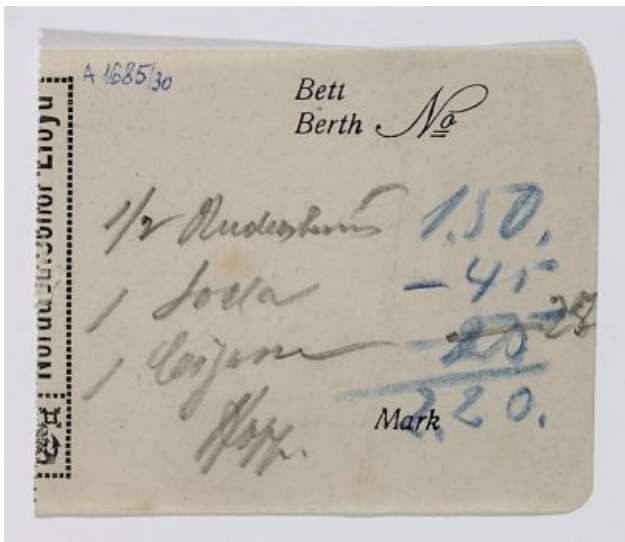 A 1685/30
Norddeutscher Lloyd
Bett
Berth №
1/2 Rudesheim 1.50.
1 Soda -45
1 Cigarre -25 25
Mark 2.20.